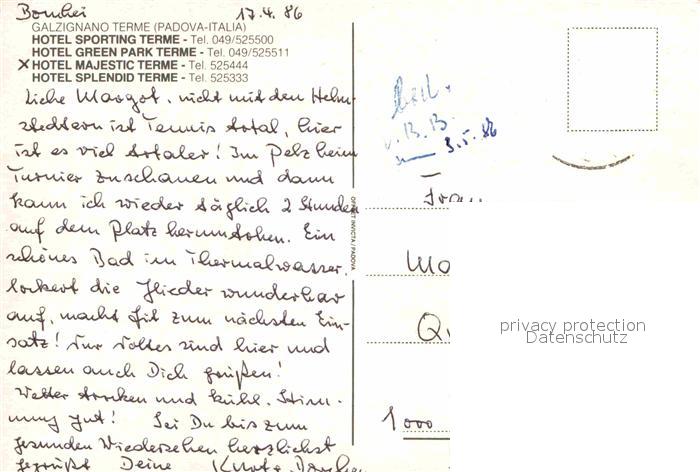 17.4.86
GALZIGNANO TERME (PADOVA-ITALIA)
HOTEL SPORTING TERME - Tel. 049/525500
HOTEL GREEN PARK TERME - Tel. 049/525511
X HOTEL MAJESTIC TERME - Tel. 525444
HOTEL SPLENDID TERME - Tel. 525333
Liebe Margot, nicht mit den Helm-
stedtern ist Tennis total, hier
ist es viel totaler! Im Pelz beim
Turnier zuschauen und dann
kann ich wieder täglich 2 Stunden
auf dem Platz herumtoben. Ein
schönes Bad im Thermalwasser
lockert die Glieder wunderbar
auf, macht fit zum nächsten Ein-
satz! Nur Voltes sind hier und
lassen auch Dich grüßen!
Wetter trocken und kühl. Stim-
mung gut! Sei Du bis zum
gesunden Wiedersehen herzlichst
gegrüßt Deine
OFFSET INVICTA/PADOVA
v. B.B.
3.5.86
Frau
Ma
Q
1000
privacy protection
Datenschutz